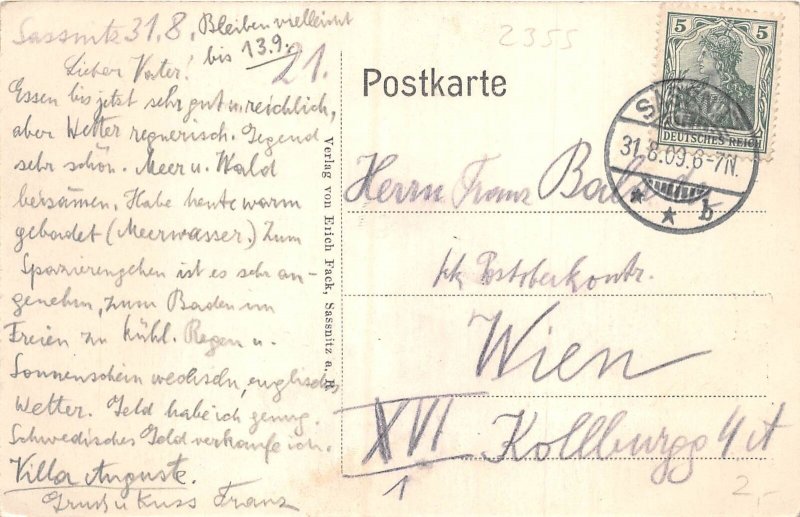 Sassnitz 31.8. Bleiben vielleicht
bis 13.9.
21.
Lieber Vater!
Essen bis jetzt sehr gut u. reichlich,
aber Wetter regnerisch. Gegend
sehr schön. Meer u. Wald
beisamen. Habe heute warm
gebadet (Meerwasser.) Zum
Spazierengehen ist es sehr an-
genehm, zum Baden im
Freien zu kühl. Regen u.
Sonnenschein wechseln, englisches
Wetter. Geld habe ich genug.
Schwedisches Geld verkaufe ich.
Villa Auguste.
Gruß u Kuss Franz
Verlag von Erich Fack, Sassnitz a. R
2355
Postkarte
5 5
DEUTSCHES REICH
31.8.09.6-7N.
b
Herrn Franz
kk Postoberkontr.
Wien
XVI Kollburgg 4
1
2,-